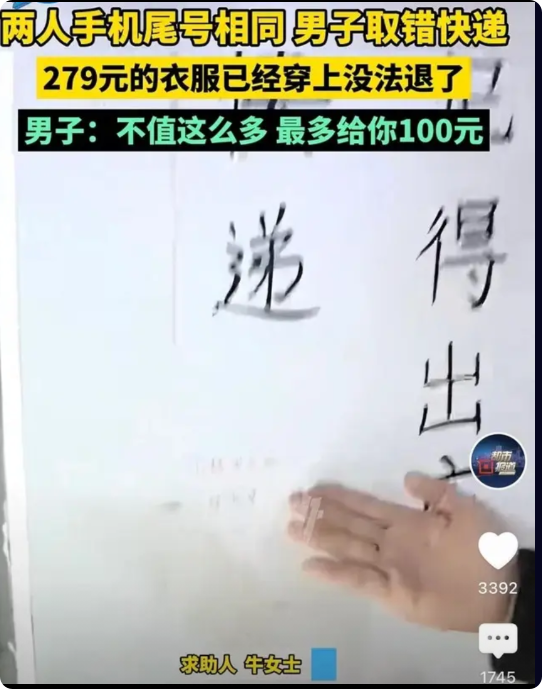 两人手机尾号相同 男子取错快递
279元的衣服已经穿上没法退了
男子：不值这么多 最多给你100元
递
得出
都市
报道
3392
求助人 牛女士
1745